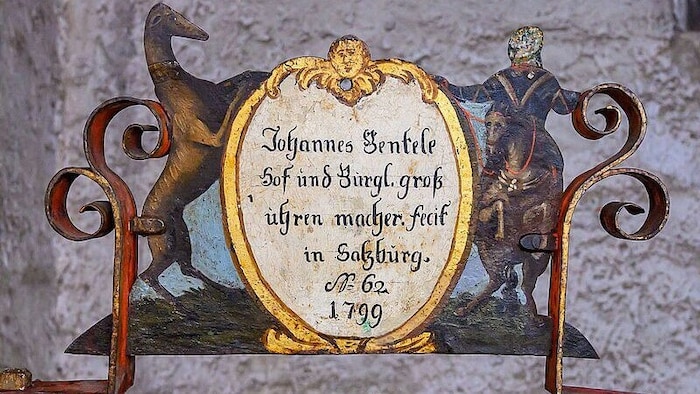 Johannes Jentele
Hof und Bürgl. groß
uhren macher. fecit
in Salzburg.
No 62
1799